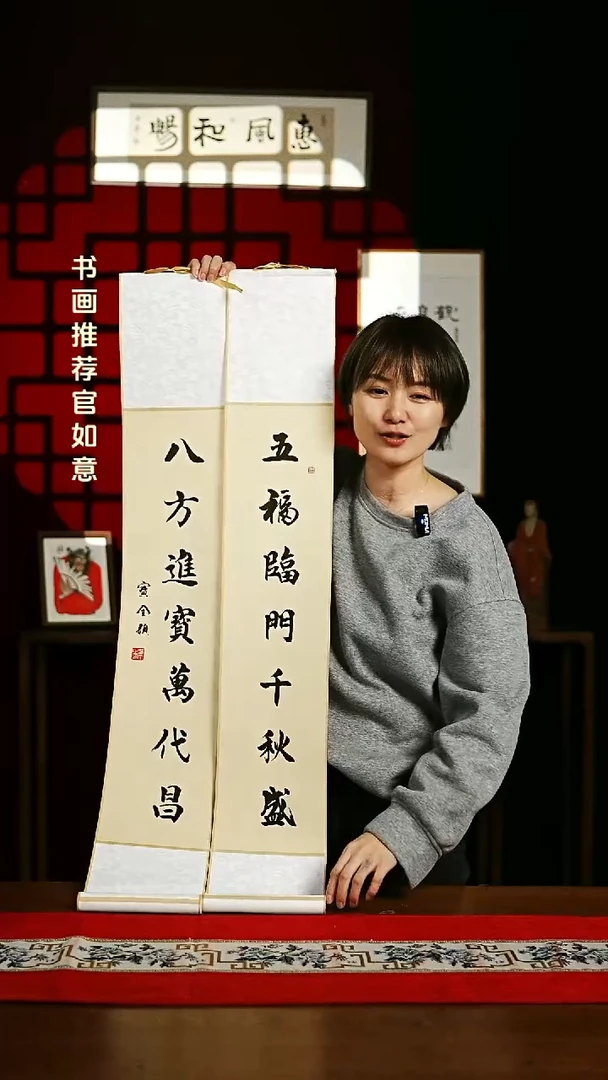 惠風和暢
书画推荐官如意
五福臨門千秋盛
八方進寶萬代昌